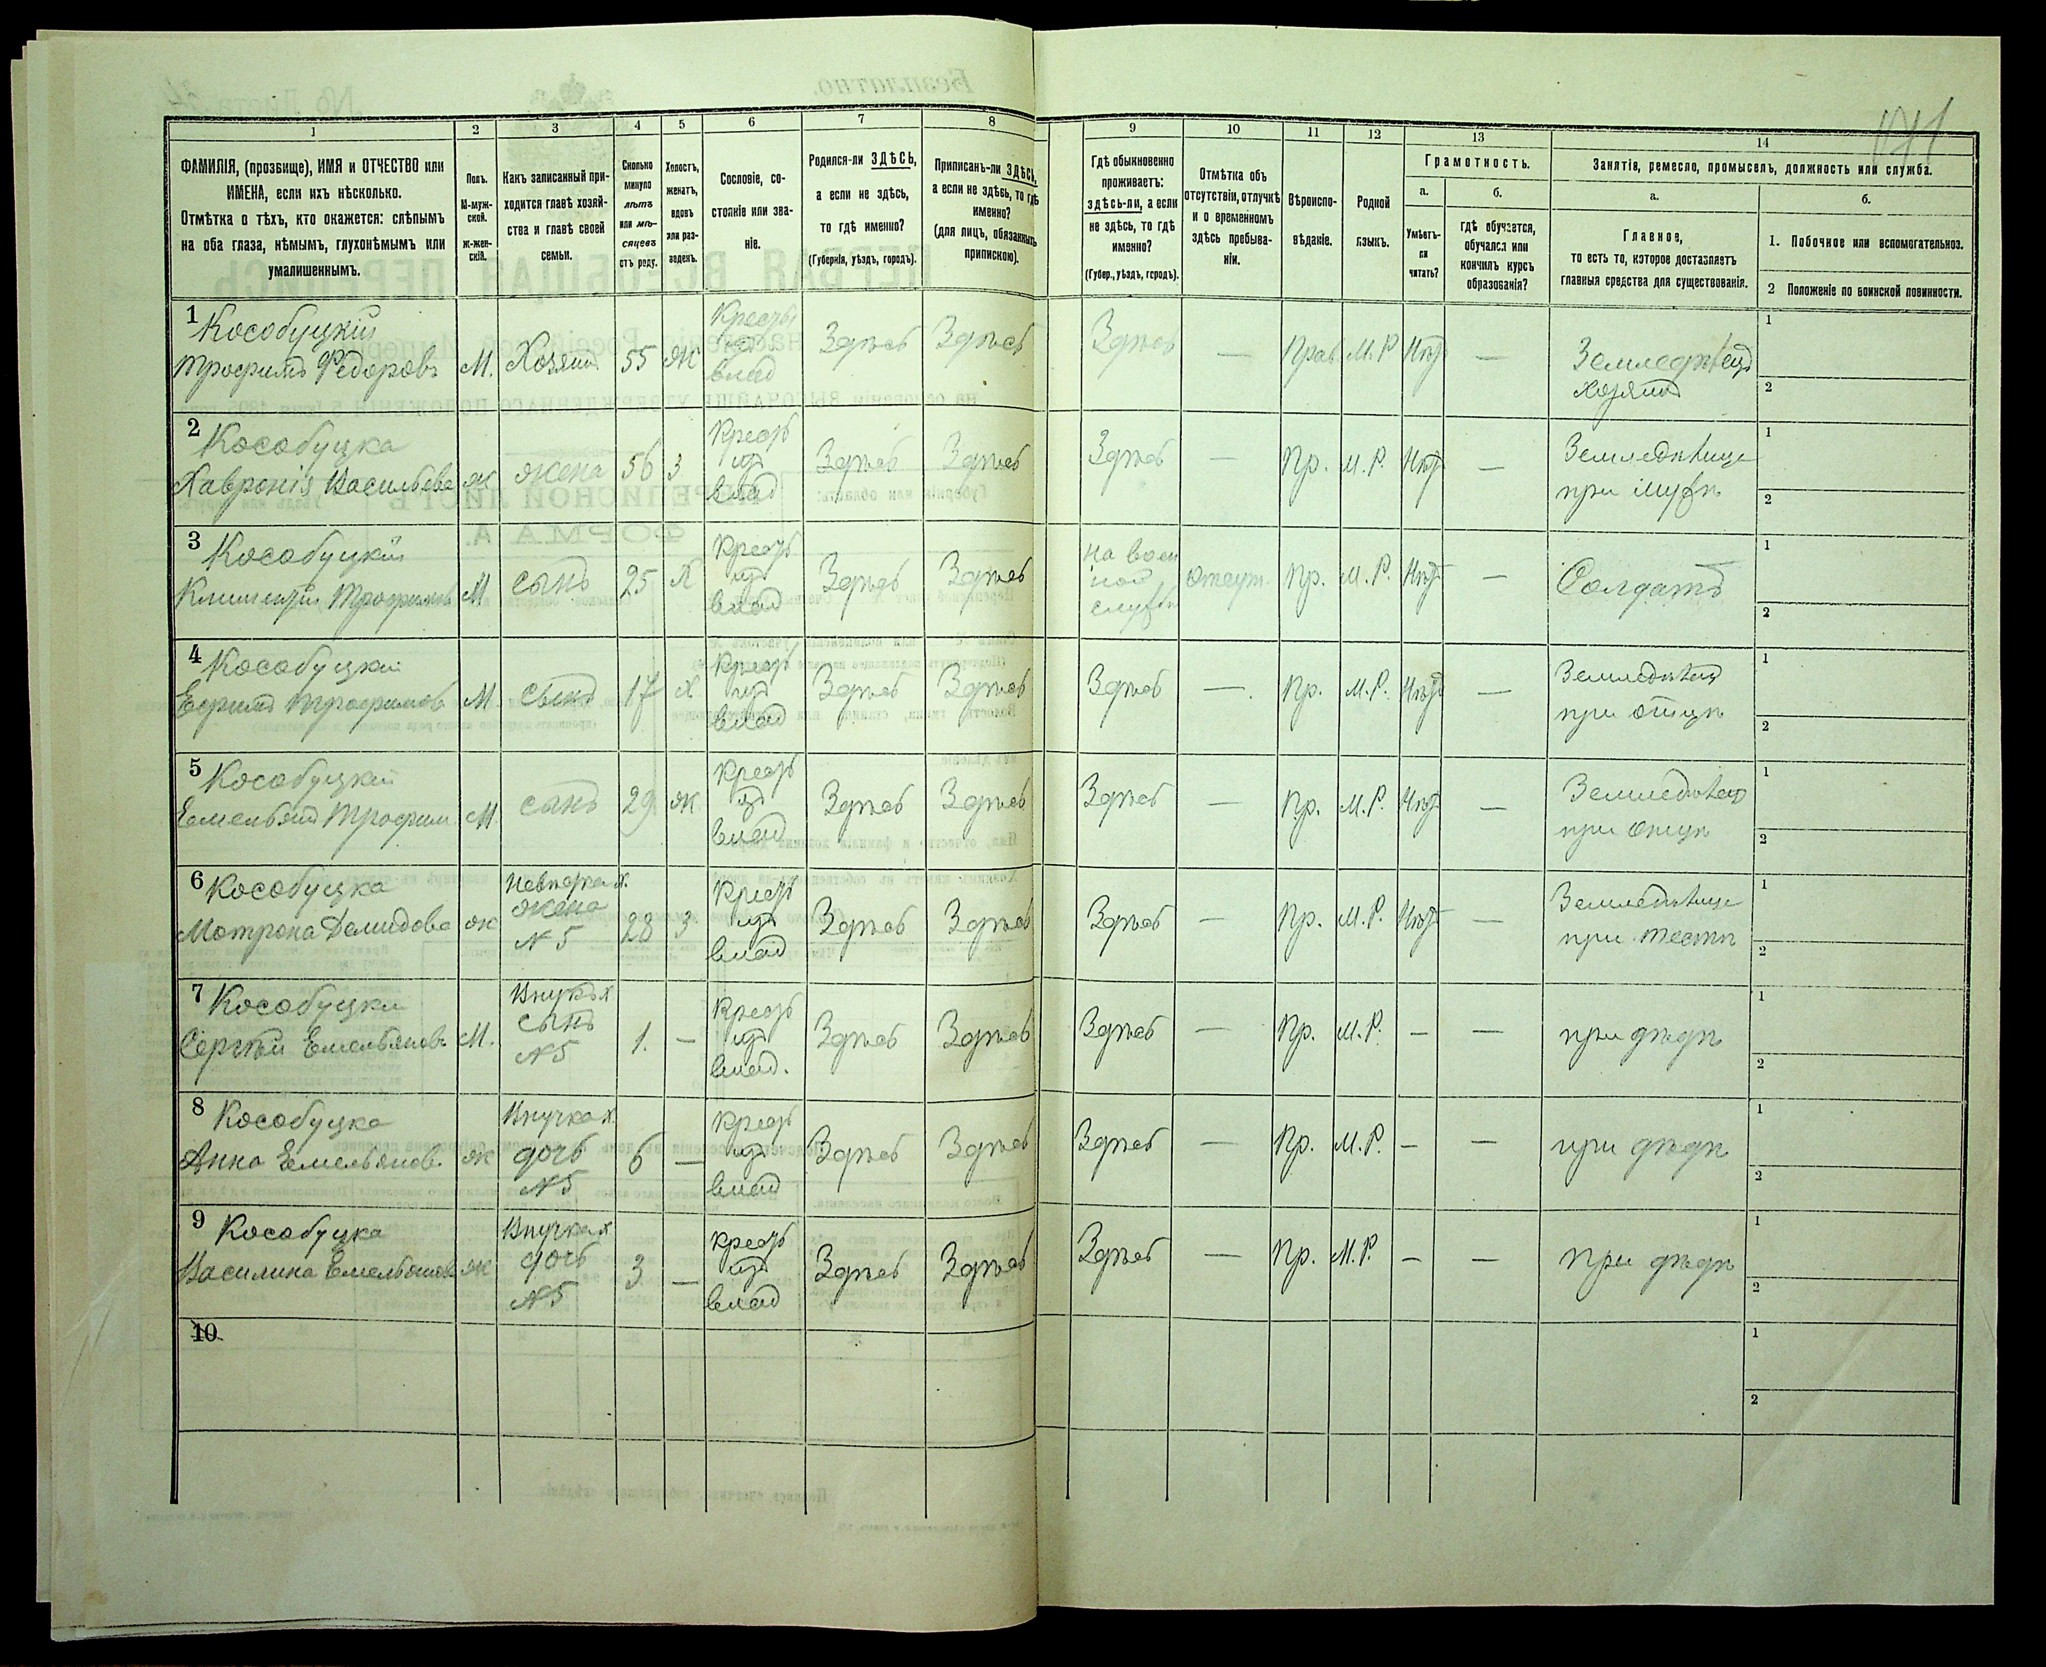 1 2 3 4 5 6 7 8 9 10 11 12 13 14
ФАМИЛІЯ, (прозвище), ИМЯ и ОТЧЕСТВО или
ИМЕНА, если ихъ нѣсколько.
Отмѣтка о тѣхъ, кто окажется: слѣпымъ
на оба глаза, нѣмымъ, глухонѣмымъ или
умалишеннымъ.
Полъ.
М-муж-
ской.
Ж-жен-
скій.
Какъ записанный при-
ходится главѣ хозяй-
ства и главѣ своей
семьи.
Сколько
минуло
лѣтъ
или мѣ-
сяцевъ
отъ роду.
Холостъ,
женатъ,
вдовъ
или раз-
веденъ.
Сословіе, со-
стояніе или зва-
ніе.
Родился-ли ЗДѢСЬ,
а если не здѣсь,
то гдѣ именно?
(Губернія, уѣздъ, городъ).
Приписанъ-ли ЗДѢСЬ,
а если не здѣсь, то гдѣ
именно?
(для лицъ, обязанныхъ
припискою).
Гдѣ обыкновенно
проживаетъ:
здѣсь-ли, а если
не здѣсь, то гдѣ
именно?
(Губер., уѣздъ, городъ).
Отмѣтка объ
отсутствіи, отлучкѣ
и о временномъ
здѣсь пребыва-
ніи.
Вѣроиспо-
вѣданіе.
Родной
языкъ.
Грамотность.
а.
Умѣетъ-
ли
читать?
б.
гдѣ обучается,
обучался или
кончилъ курсъ
образованія?
Занятіе, ремесло, промыселъ, должность или служба.
а.
Главное,
то есть то, которое доставляетъ
главныя средства для существованія.
б.
1. Побочное или вспомогательное.
2 Положеніе по воинской повинности.
1 Кособуцкій
Трофимъ Федоровъ М. Хозяинъ 55 Ж Крестьянинъ изъ влад Здѣсь Здѣсь Здѣсь — Прав М. Р Нѣтъ — Земледѣлецъ
хозяинъ
1
2
2 Кособуцка
Хавронія Васильева Ж жена 56 З Крест изъ влад Здѣсь Здѣсь Здѣсь — Пр. М. Р. Нѣтъ — Земледѣлица
при мужѣ
1
2
3 Кособуцкій
Климентій Трофимовъ М сынъ 25 Х Крест изъ влад Здѣсь Здѣсь На воен
ной
службѣ Отсут. Пр. М. Р. Нѣтъ — Солдатъ
1
2
4 Кособуцкій
Ефимъ Трофимовъ М. сынъ 17 Х Крест изъ влад Здѣсь Здѣсь Здѣсь — Пр. М. Р. Нѣтъ — Земледѣлецъ
при отцѣ
1
2
5 Кособуцкій
Емельянъ Трофим М. сынъ 29 Ж Крест изъ влад Здѣсь Здѣсь Здѣсь — Пр. М. Р. Нѣтъ — Земледѣлецъ
при отцѣ
1
2
6 Кособуцка
Матрона Демидова Ж Невѣстка х.
жена
№ 5 28 З Крест изъ влад Здѣсь Здѣсь Здѣсь — Пр. М. Р. Нѣтъ — Земледѣлица
при тестѣ
1
2
7 Кособуцки
Сергѣй Емельяновъ М. Внукъ х
сынъ
№ 5 1. — Крест изъ влад. Здѣсь Здѣсь Здѣсь — Пр. М. Р. — — при дѣдѣ
1
2
8 Кособуцка
Анна Емельянов. Ж Внучка х.
дочь
№ 5 6 — Крест изъ влад Здѣсь Здѣсь Здѣсь — Пр. М. Р. — — при дѣдѣ
1
2
9 Кособуцка
Василина Емельянова Ж Внучка х
дочь
№ 5 3 — Крест изъ влад Здѣсь Здѣсь Здѣсь — Пр. М. Р. — — при дѣдѣ
1
2
10
1
2